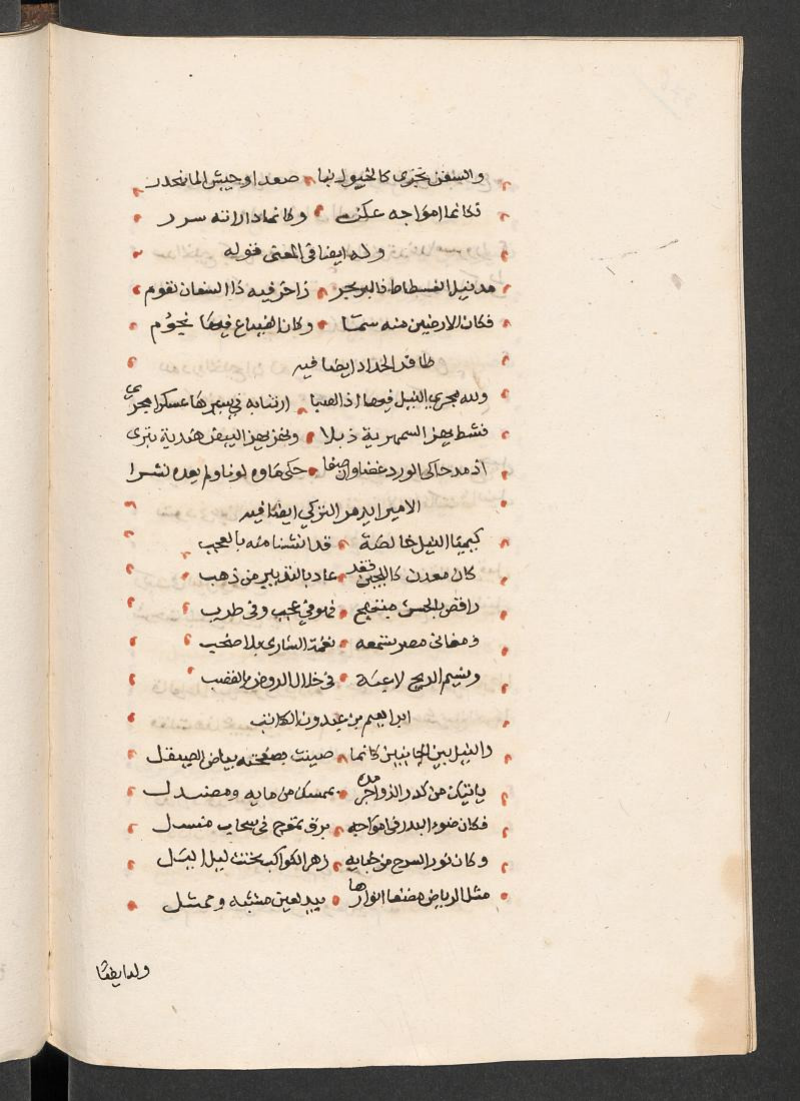 والسفن تجرى كالخيول بها صعدا وجيش الما منحدر
فكانما امواجه عكن وكانما داراته سرر
وله ايضا فى المعنى قوله
مد نيل الفسطاط فالبر بحر زاخر فيه ذا السفان تقوم
فكان الارضين منه سما وكان الضياع فيها نجوم
ظافر الحداد ايضا فيه
ولله مجرى النيل فيها اذا الصبا ارتنا به فى سيرها عسكرا مجرى
فشط يهز السمهرية ذبلا ونهر يهز البيض هندية بترى
اذ مد حاكى الورد غضا وان صفا حكى ماوه لونا ولم يعده نشرا
الامير ايدمر التركى ايضا فيه
كيميا النيل خالصة قد انشنا منه بالعجب
كان معدن كاللجين فقد عاد بالتدبير من ذهب
راقص بالحسن مبتهج فهو فى عجب وفى طرب
ومغانى مصر تسمعه نغمة السارى بلا صخب
ونسيم الريح لاعبة فى خلال الروض والقضب
ابراهيم بن عبدون الكاتب
والنيل بين الجانبين كانما صبت بصفحته بياض الصيقل
ياتيك من كدر الزواجر مده بممسك من مايه ومصندل
فكان ضوء البدر فى امواجه برق تموج فى سحاب مسبل
وكان نور السرح من جنابه زهر الكواكب تحت ليل اليل
مثل الرياض مصنفا انوارها يبد لعين مشبه وممثل
وله ايضا